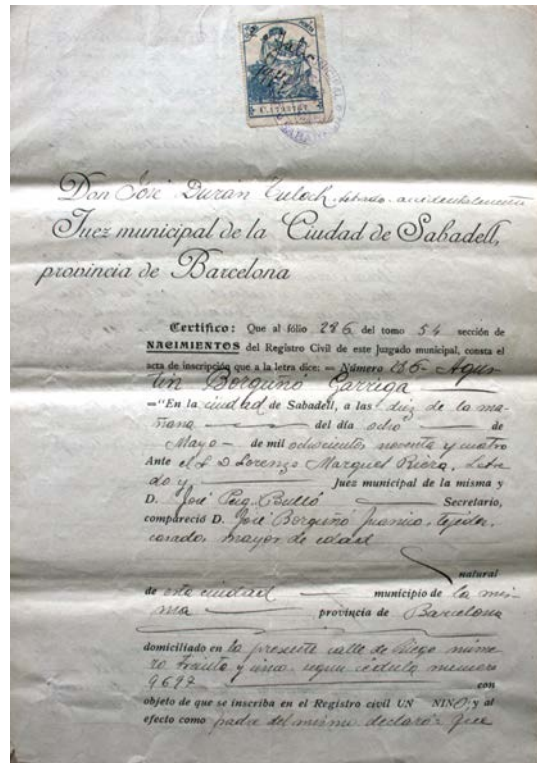 Don José Duran Tuloch, letrado accidentalmente
Juez municipal de la Ciudad de Sabadell,
provincia de Barcelona
Certifico: Que al fólio 286 del tomo 54 sección de
NACIMIENTOS del Registro Civil de este Juzgado municipal, consta el
acta de inscripción que a la letra dice: = Número 286- Agus-
tin Borguñó Garriga
="En la ciudad de Sabadell, a las diez de la ma-
ñana del día ocho de
Mayo - de mil ochocientos noventa y cuatro
Ante el S. D. Lorenzo Marquet Riera, Letra
do y Juez municipal de la misma y
D. José Puig Secretario,
compareció D. José Borguñó tejedor,
casado, mayor de edad
natural
de esta ciudad municipio de la mis-
ma provincia de Barcelona
domiciliado en la presente calle de Riego núme
ro treinta y uno, segun cédula número
9697 con
objeto de que se inscriba en el Registro civil UN NIÑO, y al
efecto como padre del mismo declaró: que